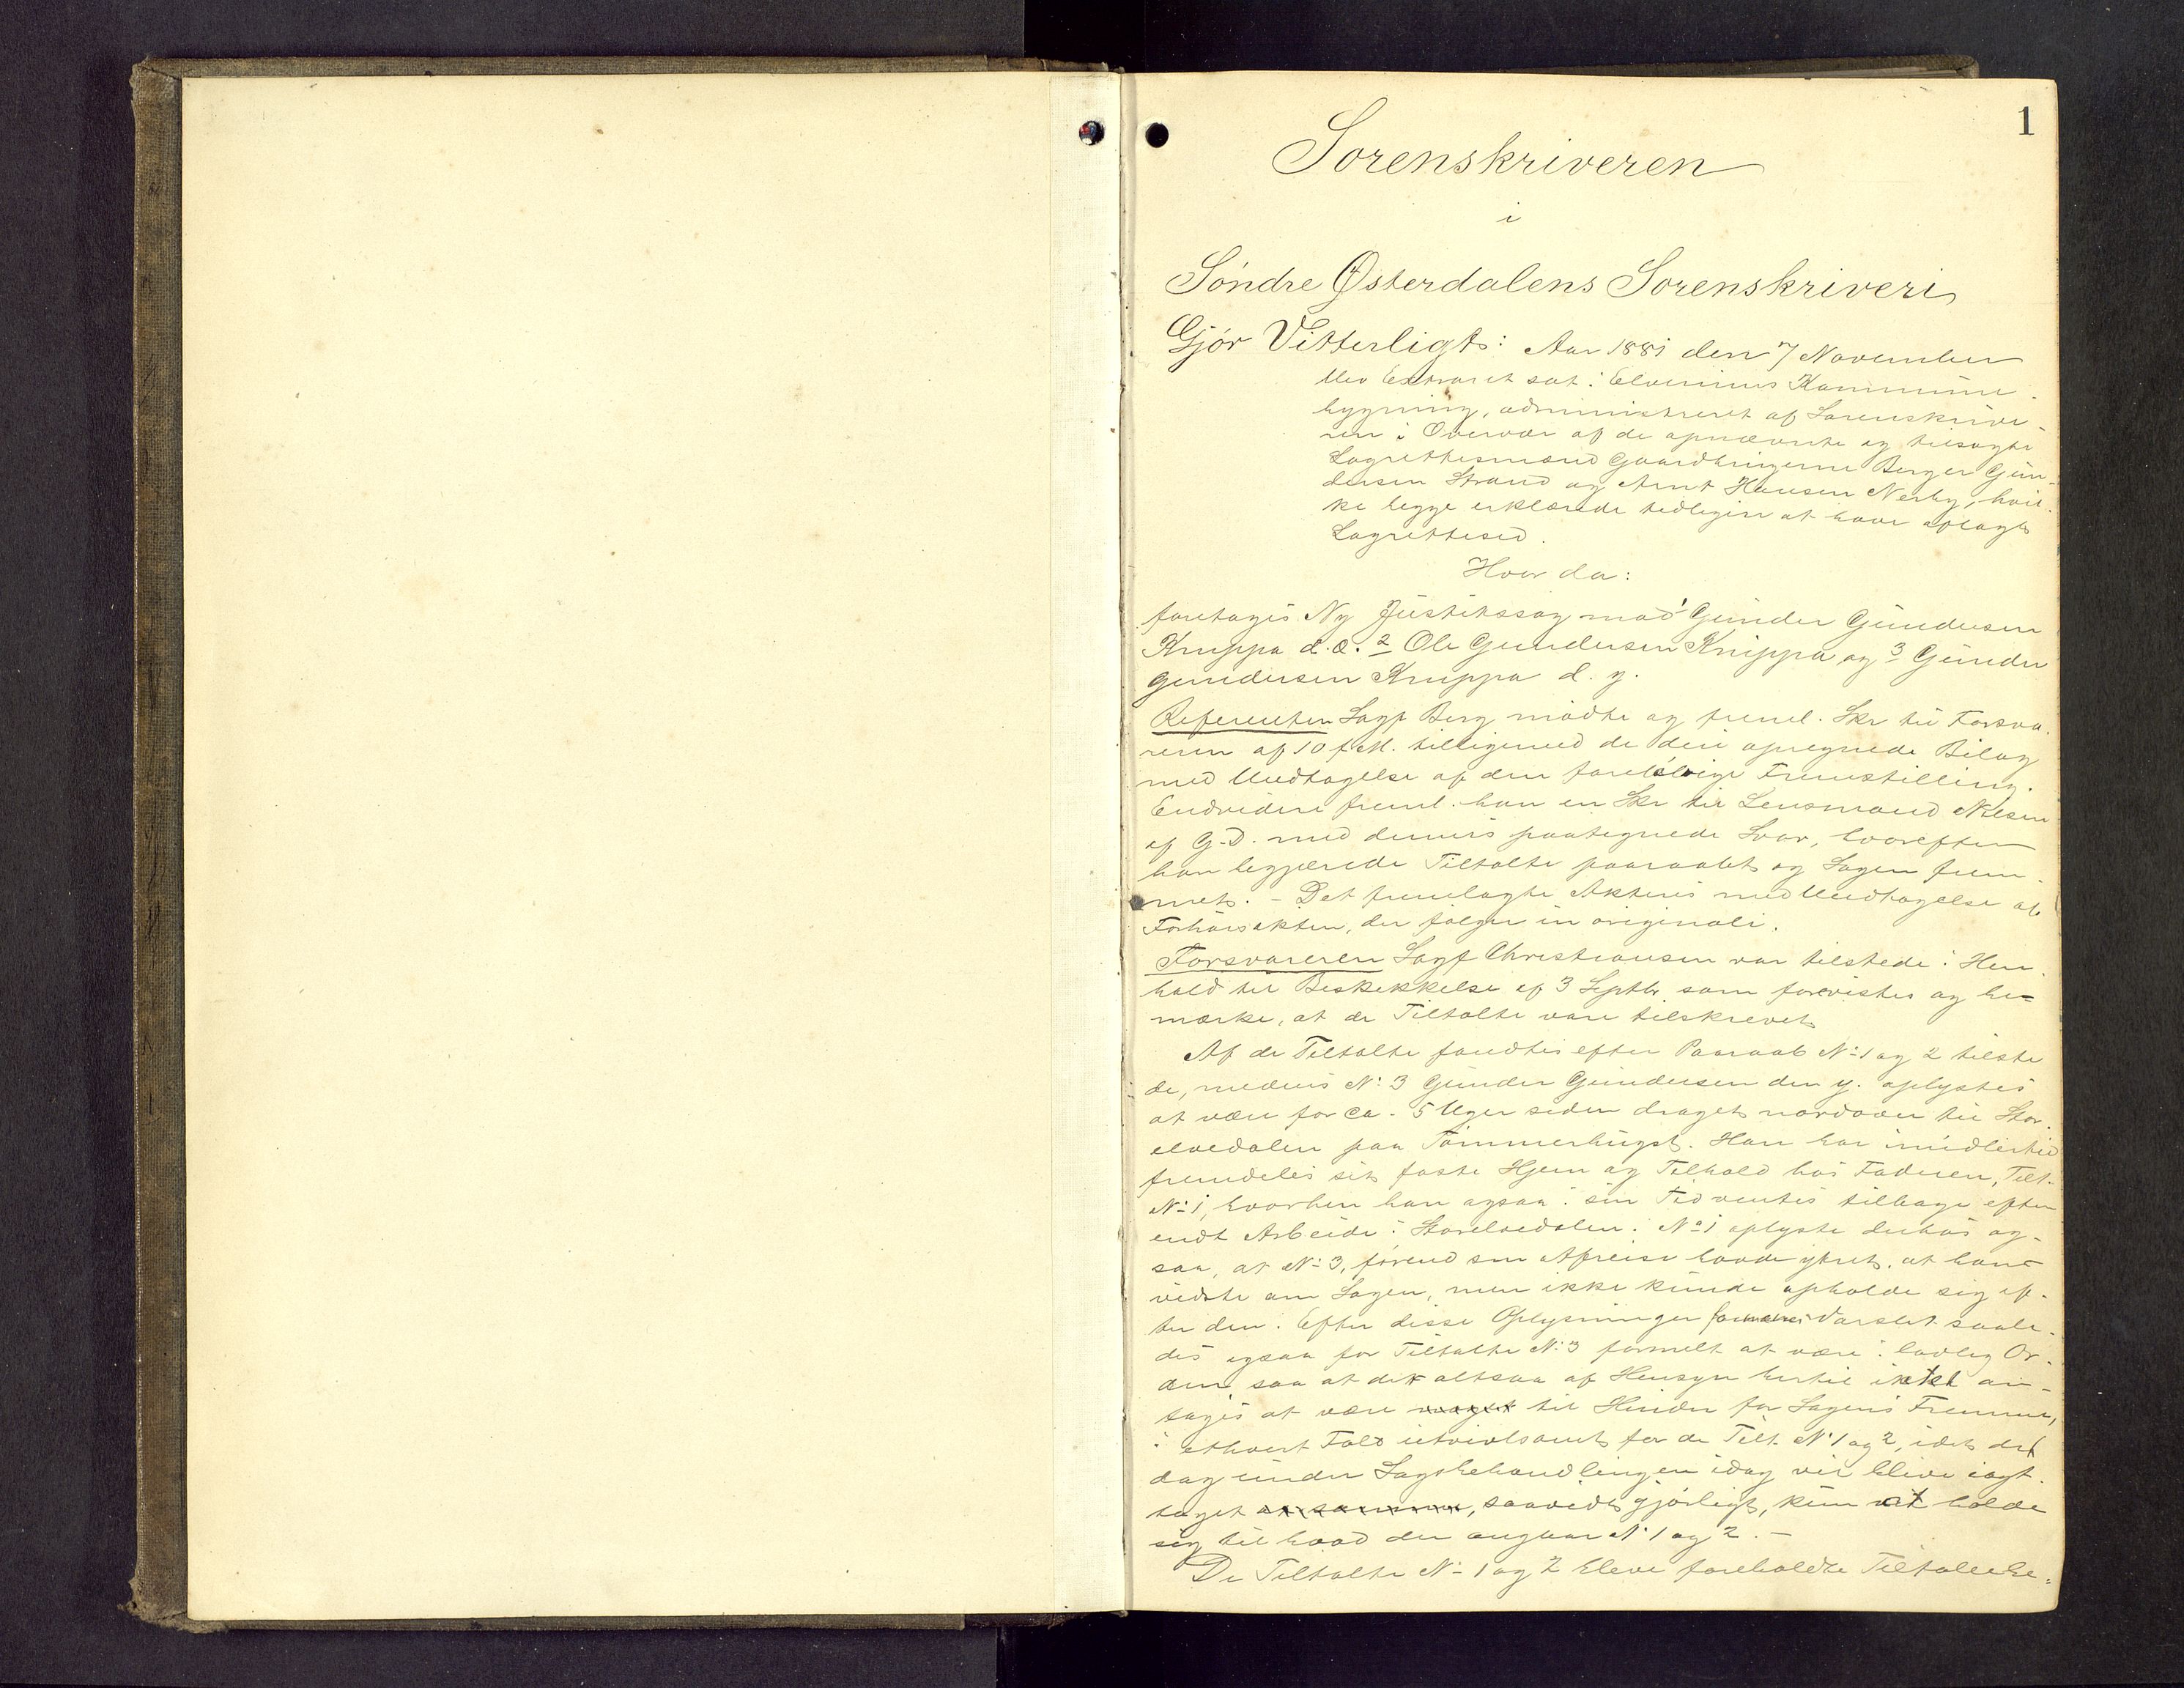 1
Sorenskriveren
i
Söndre Østerdalens Sorenskriveri
Gjör Vitterligt: Aar 1881 den 7 November
blev Extraret sat i Elverums Kommune-
bygning, administreret af Sorenskrive-
ren i Overvær af de opnævnte og tilsagte
Lagrettesmænd Gaardbrugerne Berger Gun-
dersen Strand og Arnt Hansen Nerby, hvil-
ke begge erklærede tidligere at have aflagt
Lagrettesed.
Hvor da:
foretoges Ny Justitssag mod 1 Gunder Gundersen
Kruppa d. æ. 2 Ole Gundersen Kruppa og 3 Gunder
Gundersen Kruppa d. y.
Referenten Sagf Berg mødte og freml. Skr til Forsva-
reren af 10 f. M. tilligemed de deri opregnede Bilag
med Undtagelse af den foreløbige Fremstilling.
Endvidere freml. han en Skr til Lensmand Nilsen
af G. D. med dennes paategnede Svar, hvorefter
han begjærede Tiltalte paaraabt og Sagen frem-
met. - Det fremlagte Akteres med Undtagelse af
Forhørsakten, der følger in originali.
Forsvareren Sagf Christiansen var tilstede i Hen-
hold til Beskikkelse af 3 Septbr. som forevistes og be-
mærke, at de Tiltalte vare tilskrevet
Af de Tiltalte fandtes efter Paaraab No 1 og 2 tilste-
de, medens No 3 Gunder Gundersen den y. oplystes
at være for ca. 5 Uger siden draget nordover til Stor-
elvedalen paa Tømmerhugst. Han har imidlertid
fremdeles sit faste Hjem og Tilhold hos Faderen, Tilt.
No 1, hvorhen han ogsaa i sin Tid ventes tilbage efter
endt Arbeide i Storelvedalen. No 1 oplyste derhos og-
saa, at No 3, førend sin Afreise havde ytret, at han
vidste om Sagen, men ikke kunde opholde sig ef-
ter den. Efter disse Oplysninger Varslet saale-
des ogsaa for Tiltalte No 3 formelt at være i lovlig Or-
den, saa at det altsaa af Hensyn hertil intet an-
toges at være til Hinder for Sagens Fremme,
i ethvert Fald utvivlsomt for de Tilt. No 1 og 2, idet det
dog under Sagsbehandlingen idag vil blive iagt-
taget, saavidt gjørligt, kun at holde
sig til hvad der angaar No 1 og 2. -
De Tiltalte No 1 og 2 bleve foreholdte Tiltalebe-